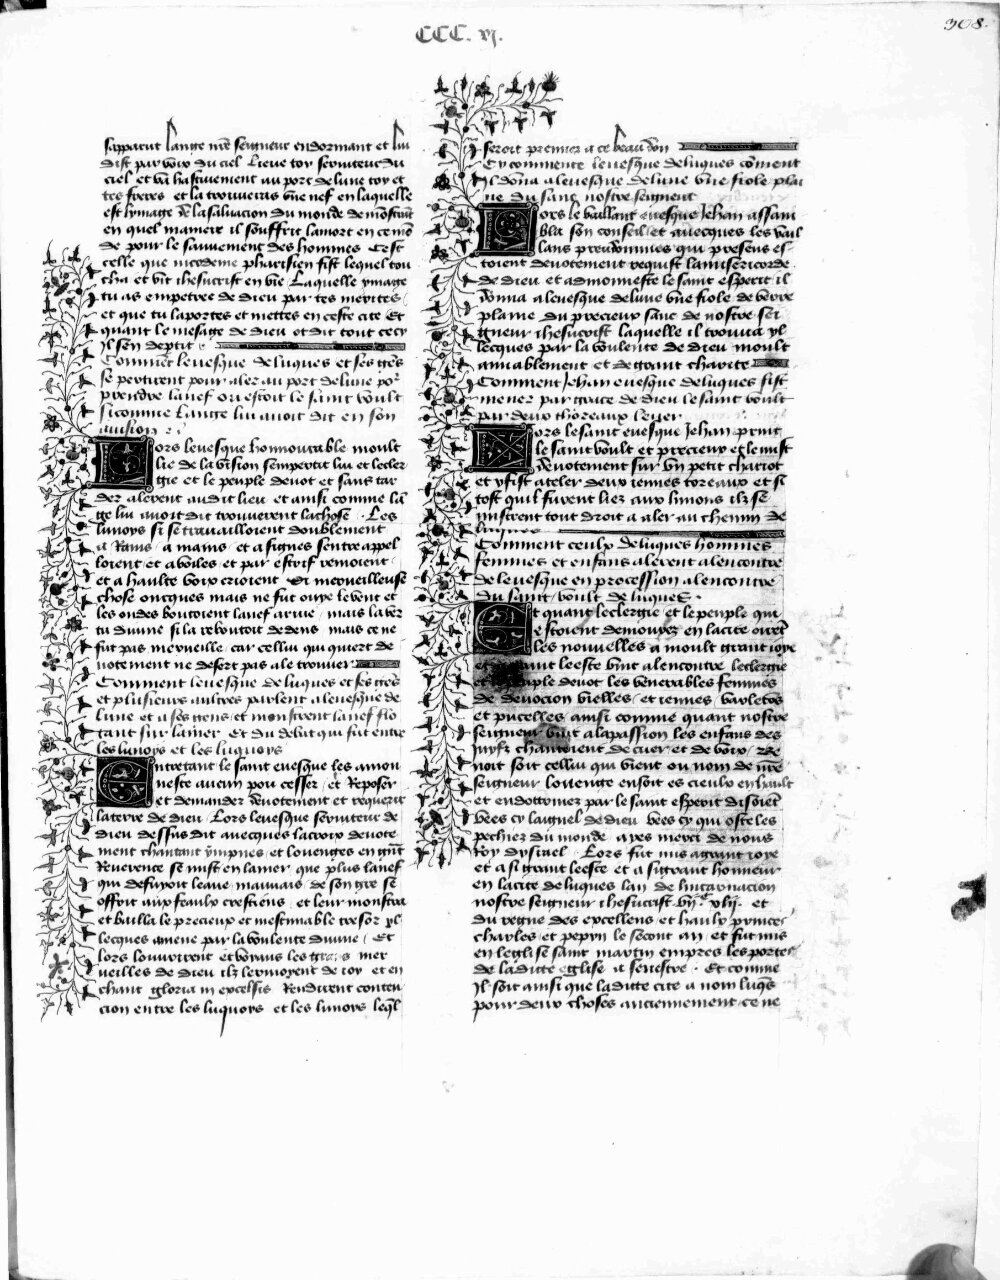 CCC. vj.
308.
sapparut lange nre seigneur en dormant et lui
dist par voix du ciel Lieve toy serviteur du
ciel et va hastivement au port de lune toy et
tes freres et la trouveras une nef en laquelle
est lymage de la salvacion du monde demonstrant
en quel maniere il souffrit la mort en ce mo
de pour le sauvement des hommes Cest
celle que nicodeme pharisien fist lequel tou
cha et vit ihesucrist en vie Laquelle ymage
tu as empetree de dieu par tes merites
et que tu laportes et mettes en ceste cite Et
quant le mesage de dieu ot dit tout cecy
Il sen deptit
Comment levesque de luques et ses ges
se partirent pour aler au port de lune por
prendre la nef ou estoit le saint voult
si comme lange lui avoit dit en son
avision
Lors levesque honnourable moult
lie de la vision semperta lui et lecler
gie et le peuple devot et sans tar
der alerent audit lieu et ainsi comme la
ge lui avoit dit trouverent la chose . Les
lunoys si se travailloient doublement
a Rains a mains et a signes sentre appel
loient et a voiles et par estrif venoient
et a haulte voix crioient Et merveilleuse
chose oncques mais ne fut ouye levent et
les ondes boutoient la nef arrive mais la ver
tu divine si la reboutoit dedens mais ce ne
fut pas merveille car cellui qui quiert de
votement ne desert pas a le trouver
Comment levesque de luques et ses ges
et plusieurs aultres parlent a levesque de
lune et a ses gens et monstrent la nef flo
tant sur la mer Et du debat qui fut entre
les lunoys et les luquoys
Entretant le saint evesque les amon
neste aucun pou cesser et Reposer
et demander devotement et requerir
layde de dieu Lors levesque serviteur de
dieu dessus dit avecques la croix devote
ment chantant ympnes et louenges en grant
Reverence se mist en la mer que plus la nef
qui defuyoit leaue mauvais de son gre se
offrit aux feaulx crestiens et leur monstra
et bailla le precieux et inestimable tresor yl
lecques amene par la voulente divine Et
lors louvrirent et veirans les grans mer
veilles de dieu ilz lermoyent de joy et en
chant gloria in excelsis Rendirent conten
cion entre les luquoys et les lunoys leql
seroit premier a ce beau don
Cy commence levesque de luques coment
Il dona a levesque de lune une fiole plai
ne du sanc nostre seigneur
Lors le vaillant evesque Jehan assam
bla son conseil et avecques les vail
lans preudommes qui presens es
toient devotement requist la misericorde
de dieu et admonneste le saint esperit il
dona a levesque de lune une fiole de verre
plaine du precieux sanc de nostre sei
gneur ihesucrist laquelle il trouva yl
lecques par la voulente de dieu moult
amiablement et de grant charite
Comment Jehan evesque de luques fist
mener par grace de dieu le saint voult
par deux thoreaux lever
Lors le saint evesque Jehan print
le saint voult et precieux et le mist
devotement sur un petit chariot
et y fist ateler deux iennes toreaux et si
tost quil furent liez aux limons ilz se
mistrent tout droit a aler au chemin de
luques
Comment ceulx de luques hommes
femmes et enfans alerent a lencontre
de levesque en procession a lencontre
du saint voult de luques .
Et quant le clergie et le peuple qui
estoient demourez en la cite oirent
les nouvelles a moult grant joye
et grant leesce vint a lencontre le clergie
et peuple devot les venerables femmes
de devocion vielles et iennes varletos
et pucelles ainsi comme quant nostre
seigneur vint a la passion les enfans des
juyfz chantoient de cuer et de voix Be
noit soit cellui qui vient ou nom de nre
seigneur louenge en soit es cieulx en hault
et en doctrinez par le saint esperit disoient
vees cy laignel de dieu vees cy qui oste les
pechiez du monde ayes mercy de nous
Roy disrael . Lors fut mis a grant joye
et a si grant leesce et a si grant honneur
en la cite de luques lan de lincarnacion
nostre seigneur ihesucrist vij c xlij . et
du regne des excellens et haulx princes
charles et pepyn le second an et fut mis
en leglise saint martin empres les portes
de la dicte eglise a senestre . Et comme
Il soit ainsi que la dicte cite a nom luqs
pour deux choses anciennement ce ne